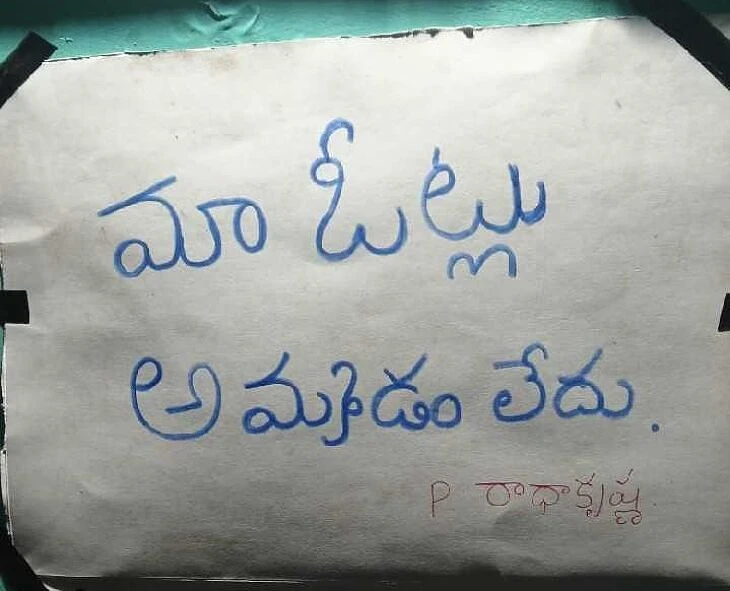 మా ఓట్లు
అమ్మడం లేదు.
P రాధాకృష్ణ